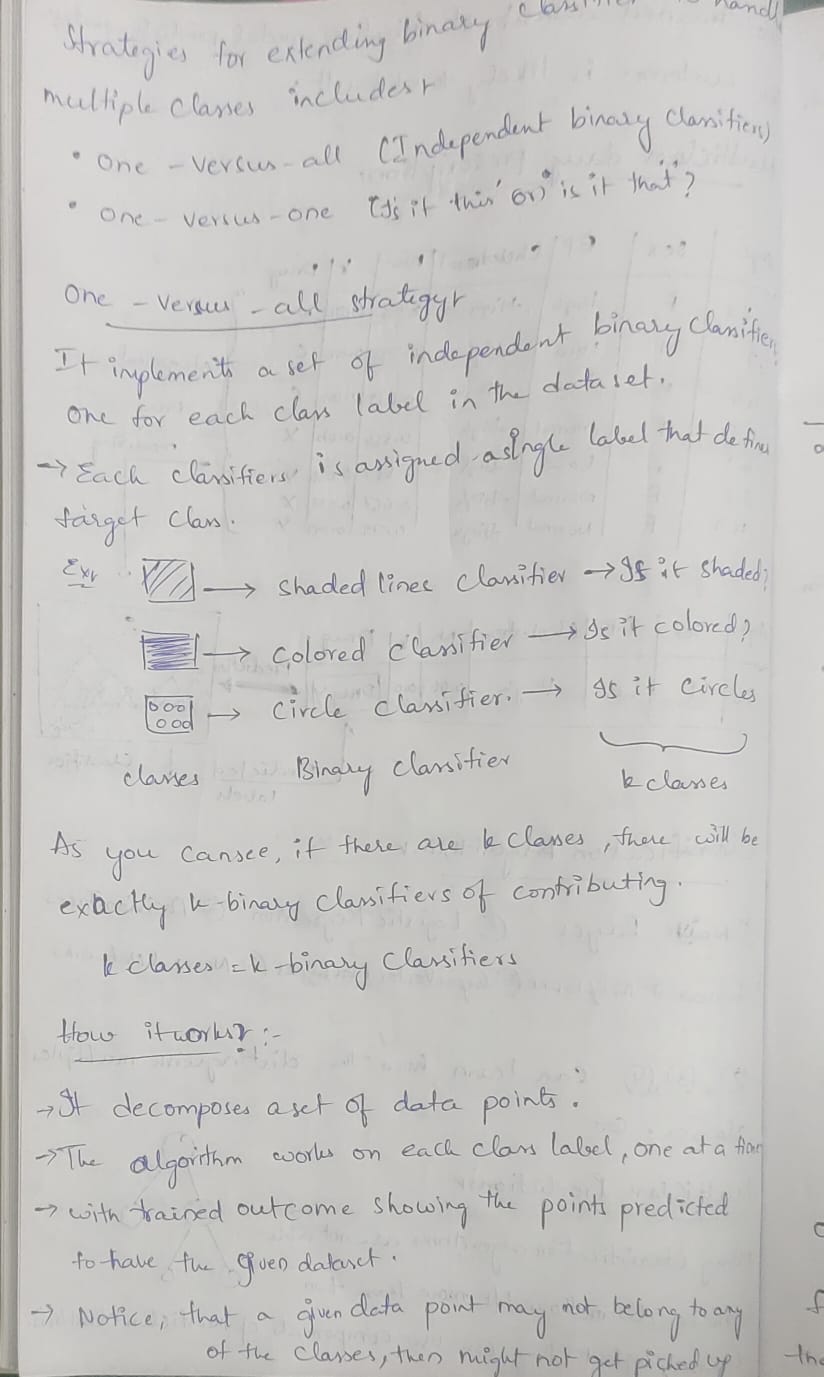 Strategies for extending binary handl
multiple classes includes:-
• One - versus - all (Independent binary classifiers)
• One - versus - one (Is it this' or) is it that?
One - versus - all strategy:-
It implements a set of independent binary classifier
one for each class label in the dataset.
→ Each classifiers is assigned a single label that defines
target class.
Ex:- → shaded lines classifier → Is it shaded?
→ Colored classifier → Is it colored?
000 000 → Circle classifier. → Is it circles
classes Binary classifier k classes
As you can see, if there are k classes, there will be
exactly k-binary classifiers of contributing.
k classes = k-binary Classifiers
How it works? :-
→ It decomposes a set of data points.
→ The algorithm works on each class label, one at a time
→ with trained outcome showing the points predicted
to have the given dataset.
→ Notice, that a given data point may not belong to any
of the classes, then might not get picked up